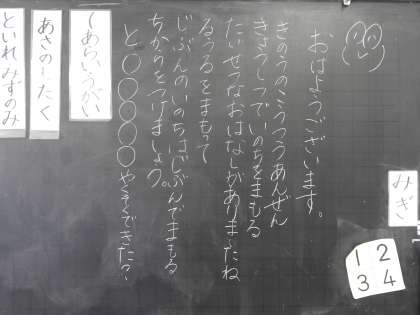 おはようございます。
きのうのこうつうあんぜん
きょうしつでいのちをまもる
たいせつなおはなしがありましたね
るうるをまもって
じぶんのいのちはじぶんでまもる
ちからをつけましょう。
と〇〇〇〇〇〇やくそくできた?
あさのしたく
といれ みずのみ
みぎ
1 2
3 4